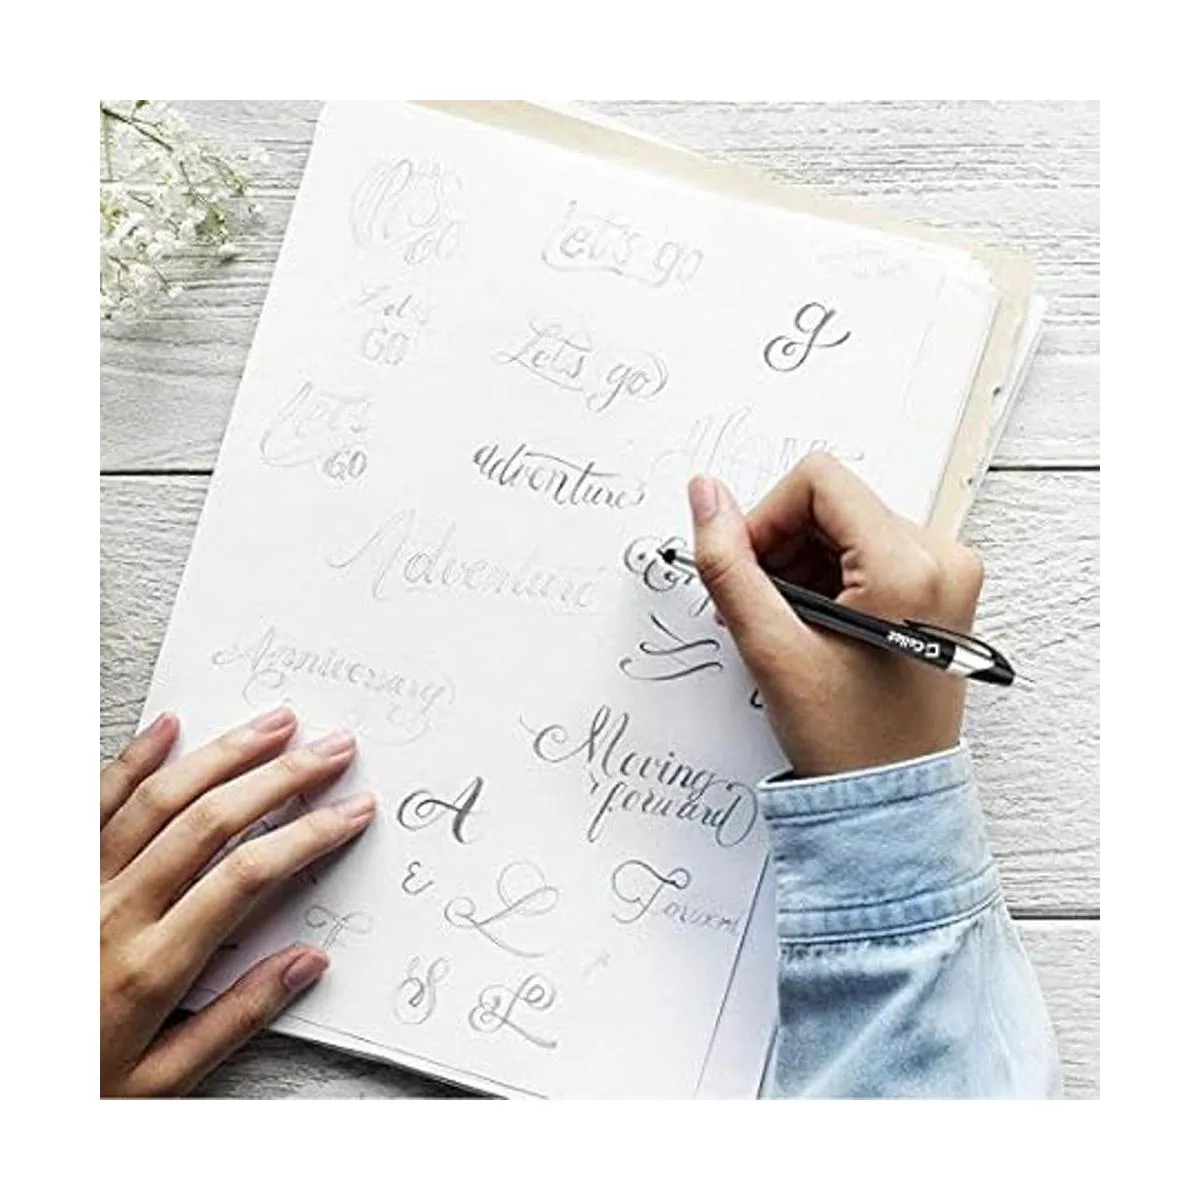 Let's go
g
Let's
GO
Let's go
Let's
GO
adventure
Adventure
Cello
Anniversary
Moving
forward
A
ε
L
Forward
T
S
L